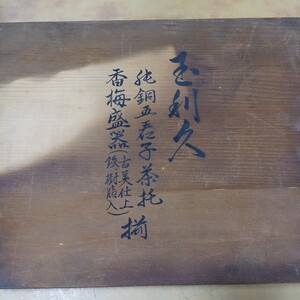 玉利久
純銅五春子茶托
香梅盛器(古美仕上
鉄樹脂入)
揃